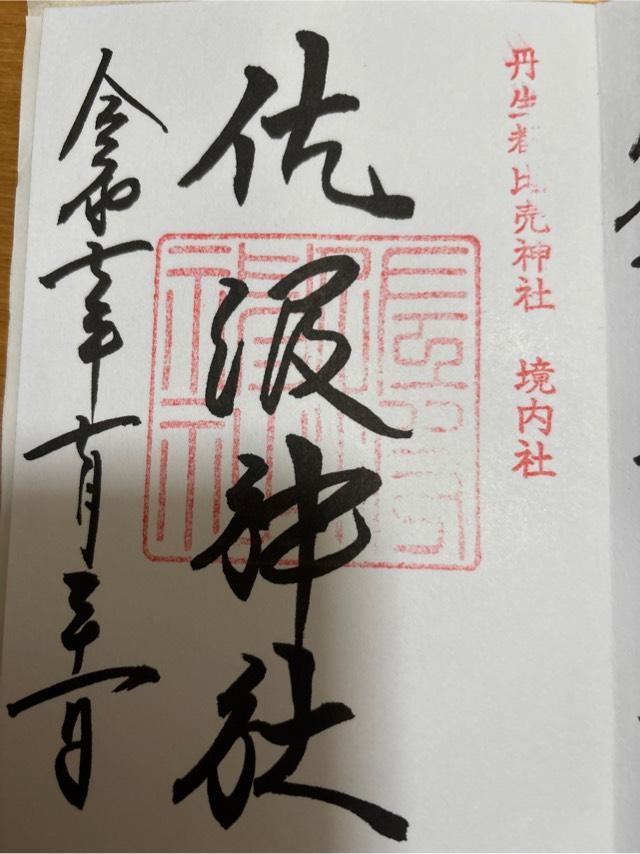 丹生都比売神社　境内社
佐波神社
令和六年十月三十一日